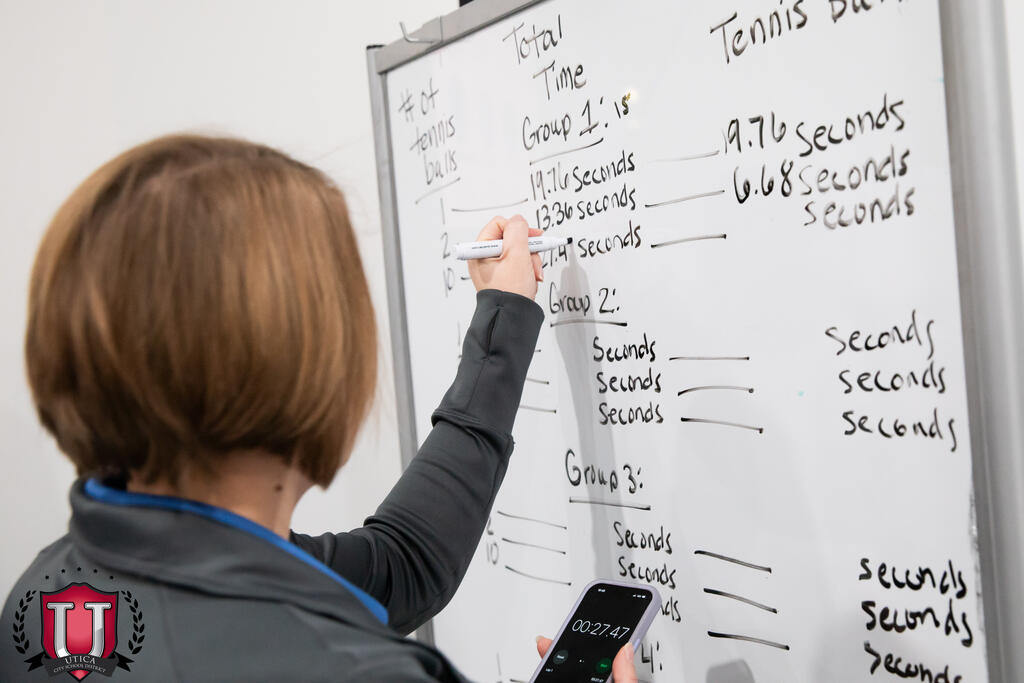 Total
Time
Tennis
# of
tennis
balls
Group 1: 15
1 19.76 seconds 19.76 seconds
2 13.36 seconds 6.68 seconds
10 27.4 seconds seconds
Group 2:
seconds seconds
seconds seconds
seconds seconds
Group 3:
seconds seconds
10 seconds seconds
seconds
00:27.47
U
UTICA
CITY SCHOOL DISTRICT